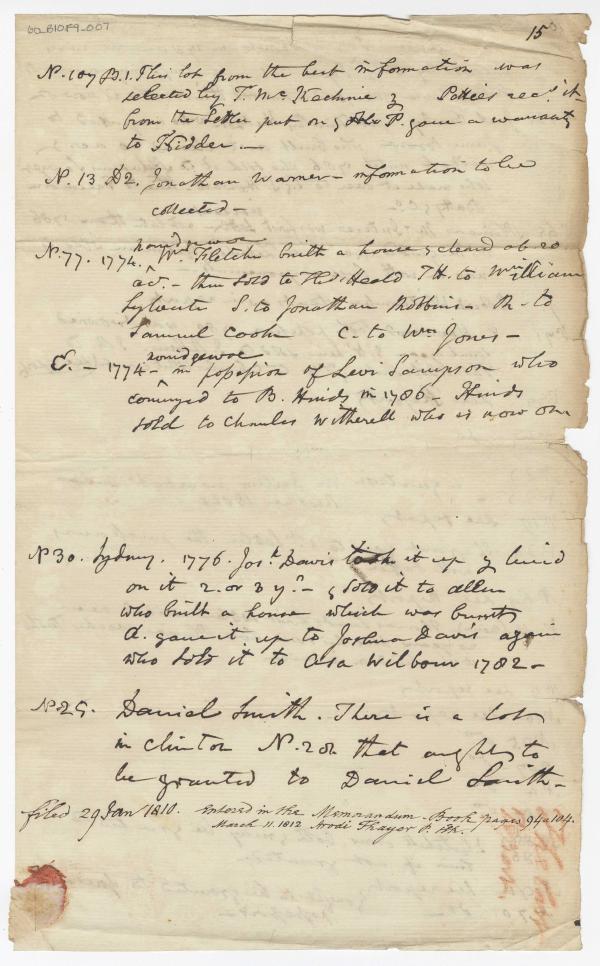 60_B10F9_007
15
N. 107 B.1. This lot from the best information was
selected by T. McKechnie & Potties recd. it
from the Settler put on & P. gave a warranty
to Kidder. —
N. 13 D2. Jonathan Warner — information to be
collected —
norridgewoc
N. 77. 1774. Wm. Fletcher built a house & cleard ab. 20
ac. — then sold to Heald H. to William
Sylvester S. to Jonathan Robbins — R. to
Samuel Cook C. to Wm Jones —
norridgewoc
— 1774 — in possession of Levi Sampson who
conveyed to B. Hinds in 1786 — Hinds
sold to Charles Witherell who is now on
N 30. Sydney. 1776. Jos. Davis took it up & livd
on it 2. or 3 ys. — & sold it to allen
who built a house which was burnt &
A. gave it up to Joshua Davis again
who sold it to Asa Wilbour 1782 —
N. 25. Daniel Smith. There is a lot
in Clinton N. that ought to
be granted to Daniel Smith —
filed 29 Jany 1810. Entered in the Memorandum - Book pages 94 a 104.
March 11. 1812 Arodi Thayer